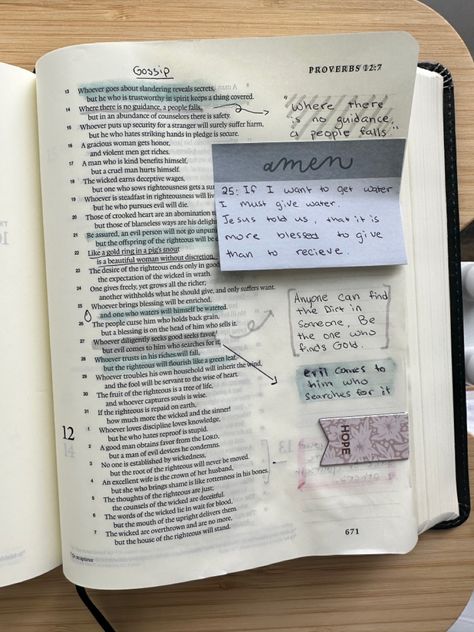 Gossip
PROVERBS 12:7
13 Whoever goes about slandering reveals secrets,
but he who is trustworthy in spirit keeps a thing covered.
14 Where there is no guidance, a people falls,
but in an abundance of counselors there is safety.
15 Whoever puts up security for a stranger will surely suffer harm,
but he who hates striking hands in pledge is secure.
16 A gracious woman gets honor,
and violent men get riches.
17 A man who is kind benefits himself,
but a cruel man hurts himself.
18 The wicked earns deceptive wages,
but one who sows righteousness gets a
19 Whoever is steadfast in righteousness will
but he who pursues evil will die.
20 Those of crooked heart are an abomination
but those of blameless ways are his
21 Be assured, an evil person will not go
but the offspring of the righteous will be
22 Like a gold ring in a pig's snout
is a beautiful woman without discretion.
23 The desire of the righteous ends only in good,
the expectation of the wicked in wrath.
24 One gives freely, yet grows all the richer;
another withholds what he should give, and only suffers want.
25 Whoever brings blessing will be enriched,
and one who waters will himself be watered.
26 The people curse him who holds back grain,
but a blessing is on the head of him who sells it.
27 Whoever diligently seeks good seeks favor,
but evil comes to him who searches for it.
28 Whoever trusts in his riches will fall,
but the righteous will flourish like a green leaf.
29 Whoever troubles his own household will inherit the wind,
and the fool will be servant to the wise of heart.
30 The fruit of the righteous is a tree of life,
and whoever captures souls is wise.
31 If the righteous is repaid on earth,
how much more the wicked and the sinner!
12
1 Whoever loves discipline loves knowledge,
but he who hates reproof is stupid.
2 A good man obtains favor from the LORD,
but a man of evil devices he condemns.
3 No one is established by wickedness,
but the root of the righteous will never be moved.
4 An excellent wife is the crown of her husband,
but she who brings shame is like rottenness in his bones.
5 The thoughts of the righteous are just;
the counsels of the wicked are deceitful.
6 The words of the wicked lie in wait for blood,
but the mouth of the upright delivers them.
7 The wicked are overthrown and are no more,
but the house of the righteous will stand.
"Where there
is no guidance
a people falls"
amen
25: If I want to get water
I must give water.
Jesus told us, that it is
more blessed to give
than to recieve.
Anyone can find
the Dirt in
someone, Be
the one who
finds Gold.
evil comes to
him who
searches for it
HOPE
671